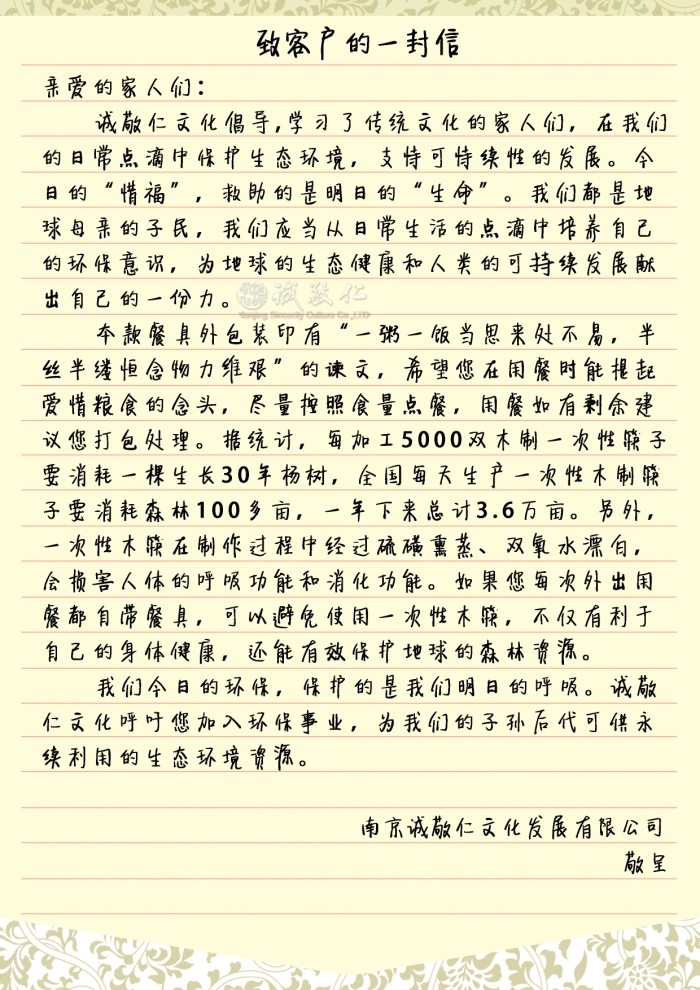 致客户的一封信
亲爱的家人们：
诚敬仁文化倡导,学习了传统文化的家人们，在我们
的日常点滴中保护生态环境，支持可持续性的发展。今
日的“惜福”，救助的是明日的“生命”。我们都是地
球母亲的子民，我们应当从日常生活的点滴中培养自己
的环保意识，为地球的生态健康和人类的可持续发展献
出自己的一份力。
诚敬仁
Nanjing Sincerity Culture Co.,LTD
本款餐具外包装印有“一粥一饭当思来处不易，半
丝半缕恒念物力维艰”的谏文，希望您在用餐时能提起
爱惜粮食的念头，尽量按照食量点餐，用餐如有剩余建
议您打包处理。据统计，每加工5000双木制一次性筷子
要消耗一棵生长30年杨树，全国每天生产一次性木制筷
子要消耗森林100多亩，一年下来总计3.6万亩。另外，
一次性木筷在制作过程中经过硫磺熏蒸、双氧水漂白，
会损害人体的呼吸功能和消化功能。如果您每次外出用
餐都自带餐具，可以避免使用一次性木筷，不仅有利于
自己的身体健康，还能有效保护地球的森林资源。
我们今日的环保，保护的是我们明日的呼吸。诚敬
仁文化呼吁您加入环保事业，为我们的子孙后代可供永
续利用的生态环境资源。
南京诚敬仁文化发展有限公司
敬呈